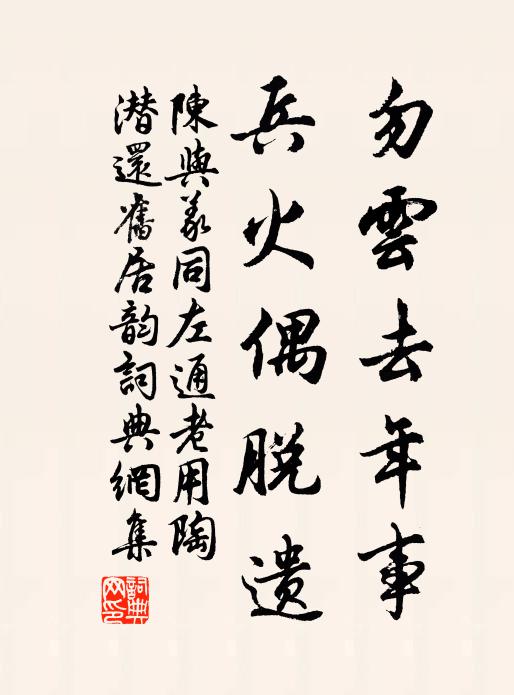 勿雲去年事
兵火偶脱遗
陳與義同左通老用陶
潜還舊居韵詞典網集
詞典網印